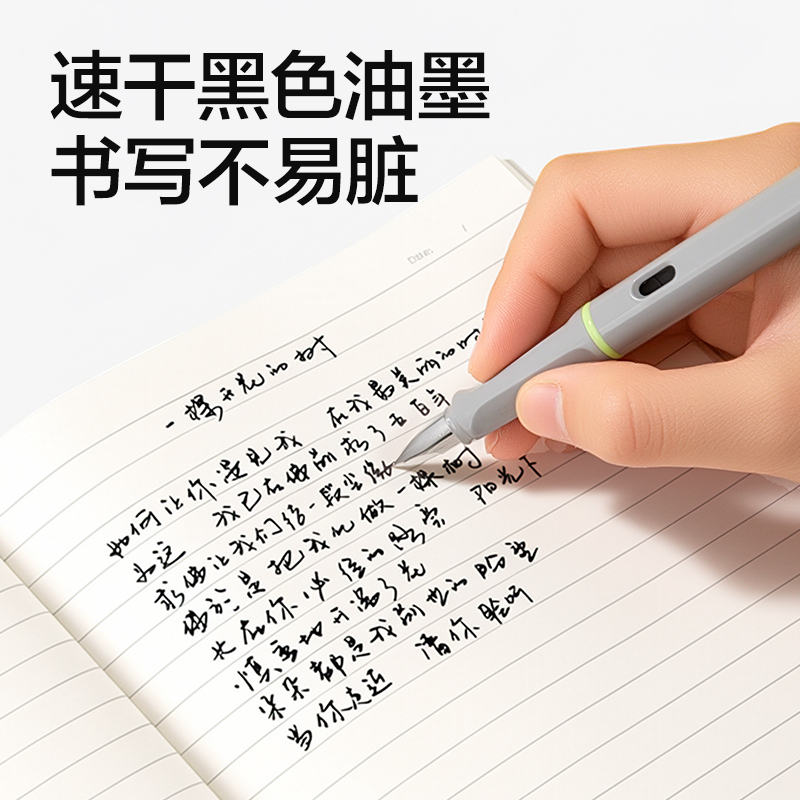 速干黑色油墨
书写不易脏
一棵开花的树
如何让你遇见我 在我最美丽的时
为这 我已在佛前求了五百年
求佛让我们结一段尘缘
佛于是把我化做一棵树
长在你必经的路旁 阳光下
慎重地开满了花
朵朵都是我前世的盼望
当你走近 请你聆听